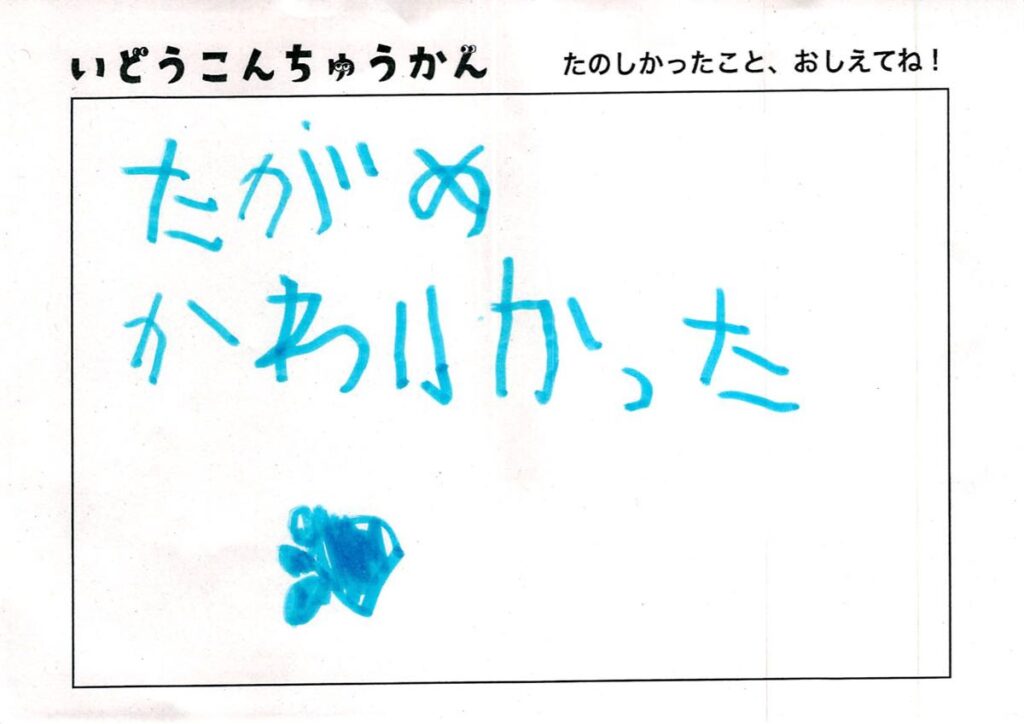 いどうこんちゅうかん
たのしかったこと、おしえてね！
たがめ
かわりかった